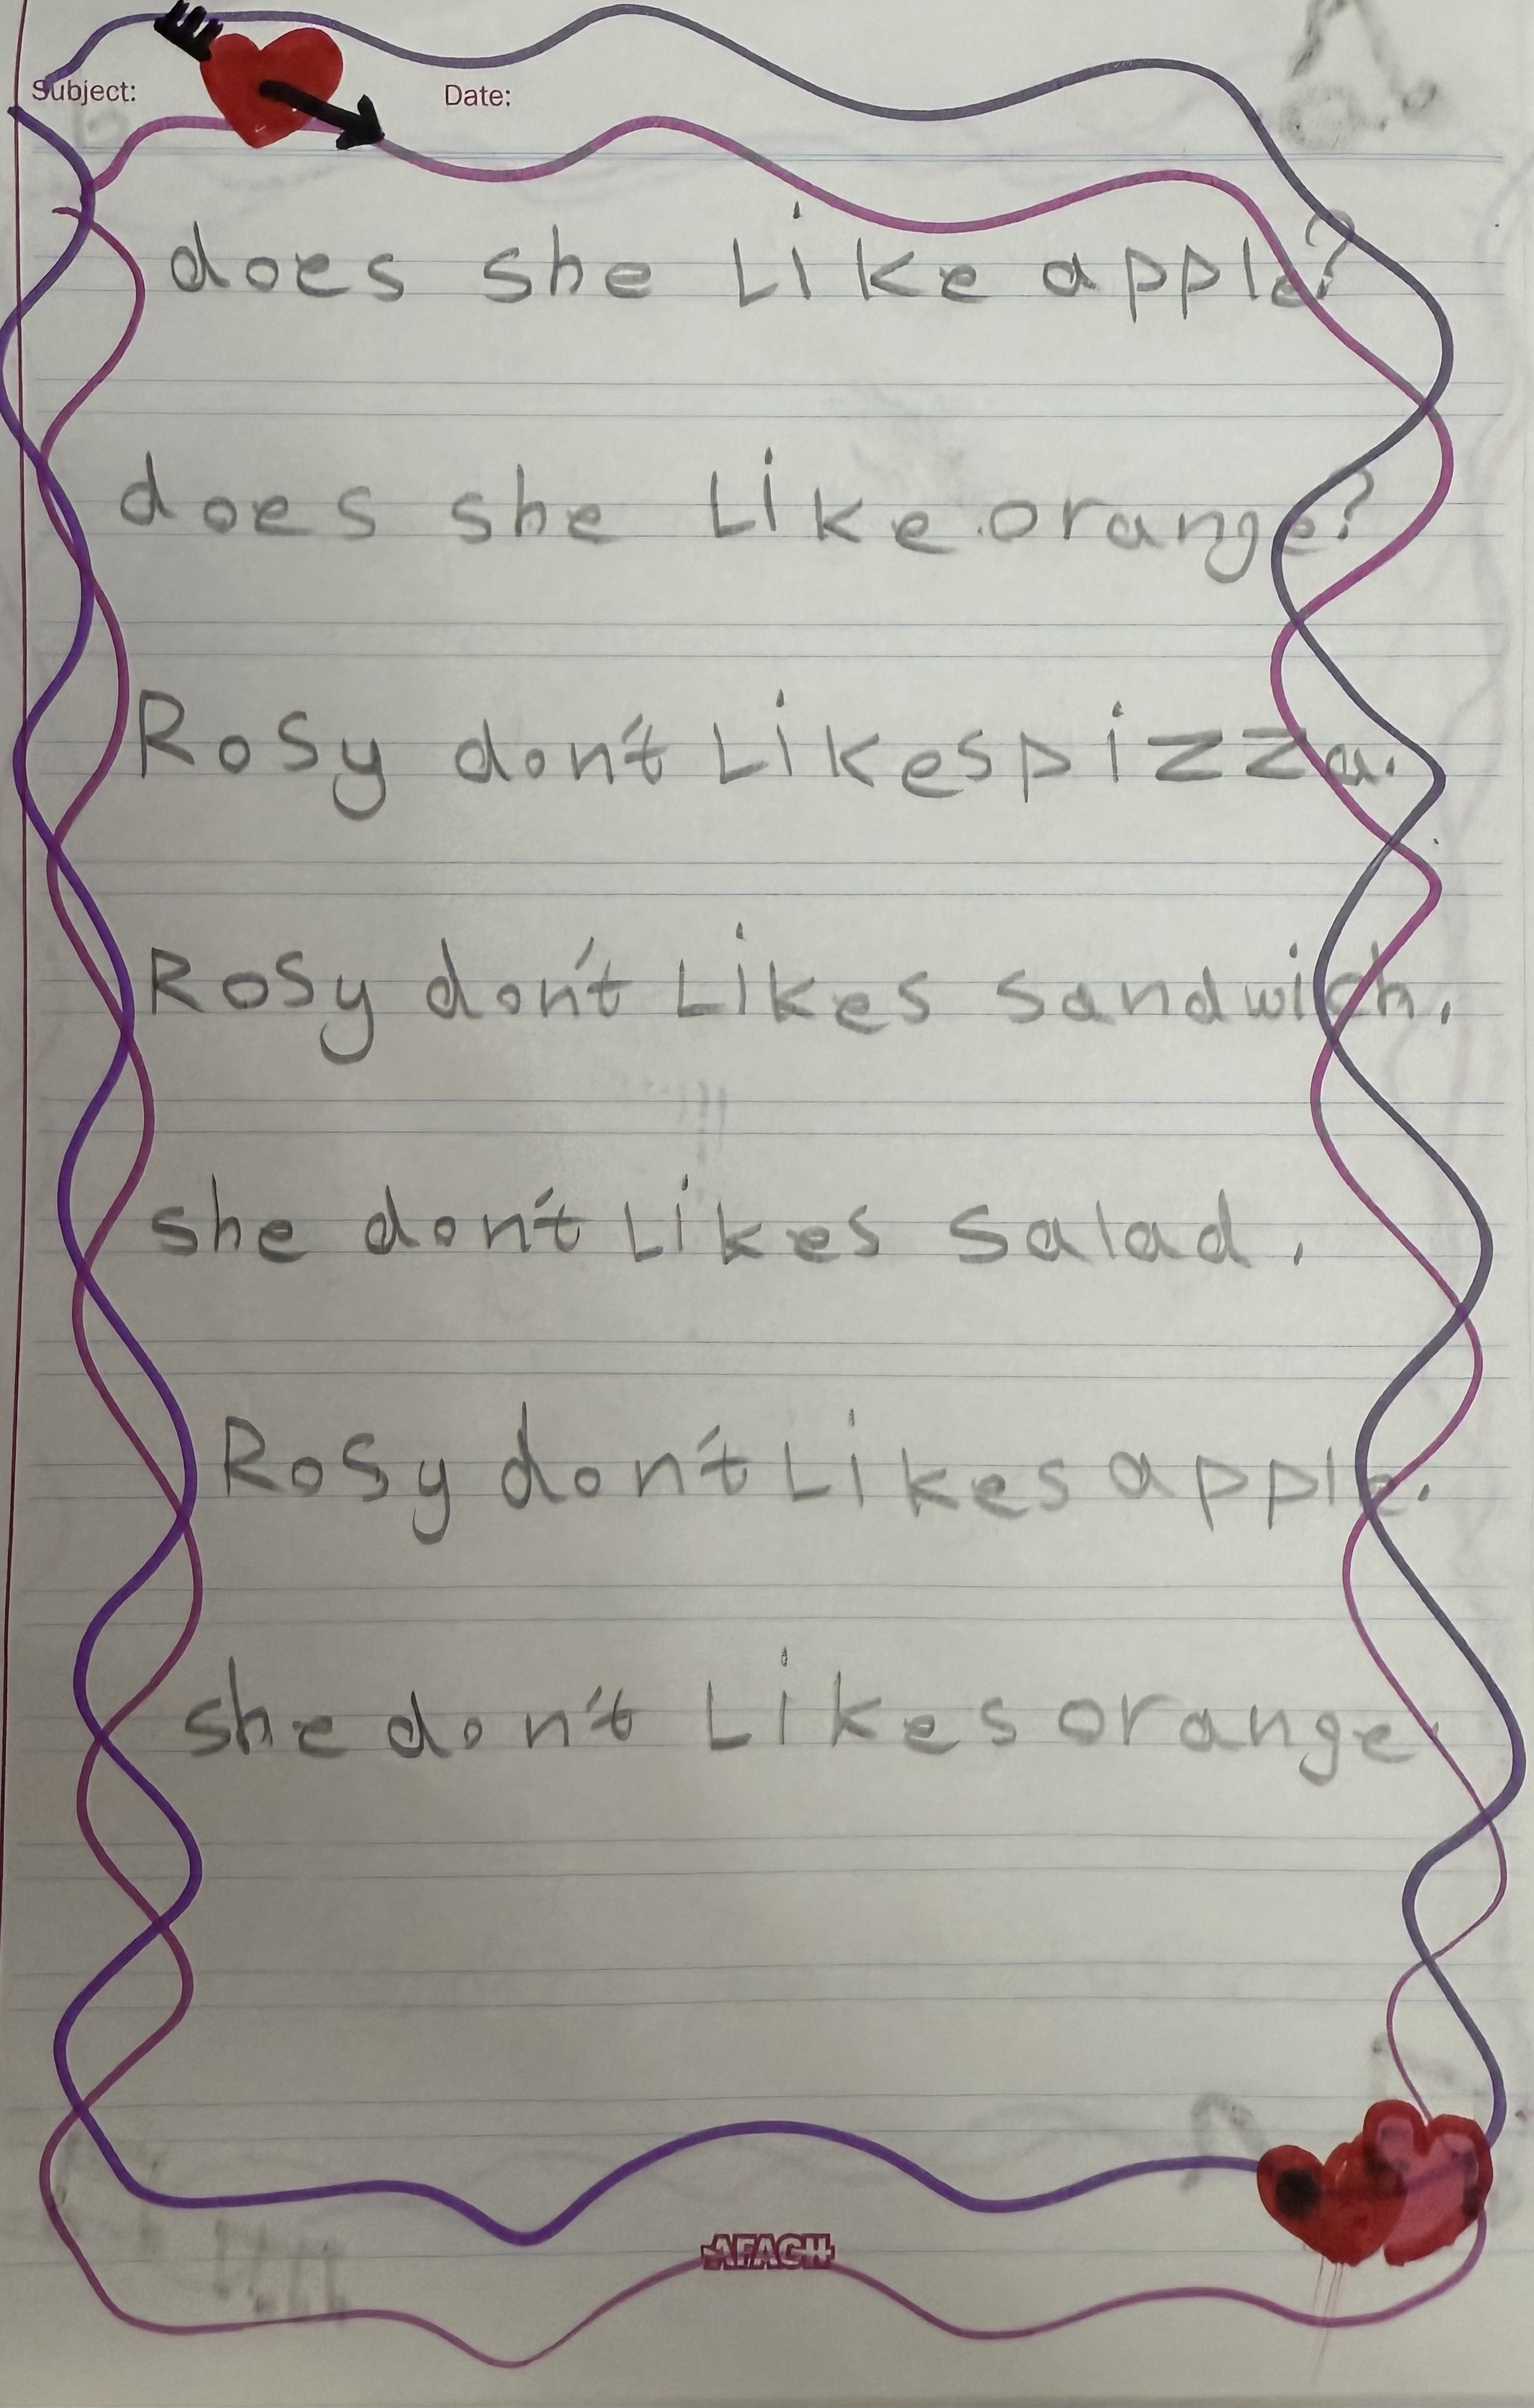 Subject: Date:
does she Like apple?
does she Like orange?
Rosy don't Likes pizza.
Rosy don't Likes sandwich.
she don't Likes salad.
Rosy don't Likes apple.
she don't Likes orange.
AFAGH